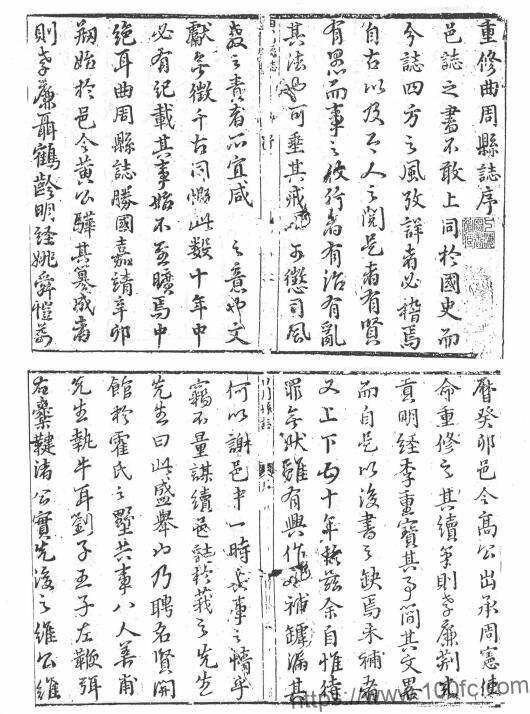 重修曲周縣誌序
邑誌之書不敢上同於國史而
今誌四方之風攷詳者必稽焉
自古以及今人之閱是書有賢
有愚而事之彼行者有治有亂
其法也可垂其戒也可懲司風
教之責者所宜咸之意也文
獻無徵千古同慨此數十年中
必有紀載其事始不至曠焉中
絕耳曲周縣誌勝國嘉靖辛卯
刱始於邑令黃公驊其纂成者
則孝廉聶鶴齡明經姚舜愷萬
曆癸卯邑令高公出承周憲使
命重修之其續筆則孝廉荆光
貢明經李重寶其事簡其文畧
而自是以後書之缺焉未補者
又上下五十年於茲余自惟待
罪無狀雖有興作補罅漏其
何以謝邑中一時長事之情乎
竊不量謀續邑誌於莪之先生
先生曰此盛舉也乃聘名賢開
館於霍氏之墅共事八人善甫
先生執牛耳劉子王子左鞭弭
右櫜鞬諸公實先後之維公維
https://www.100fc.com